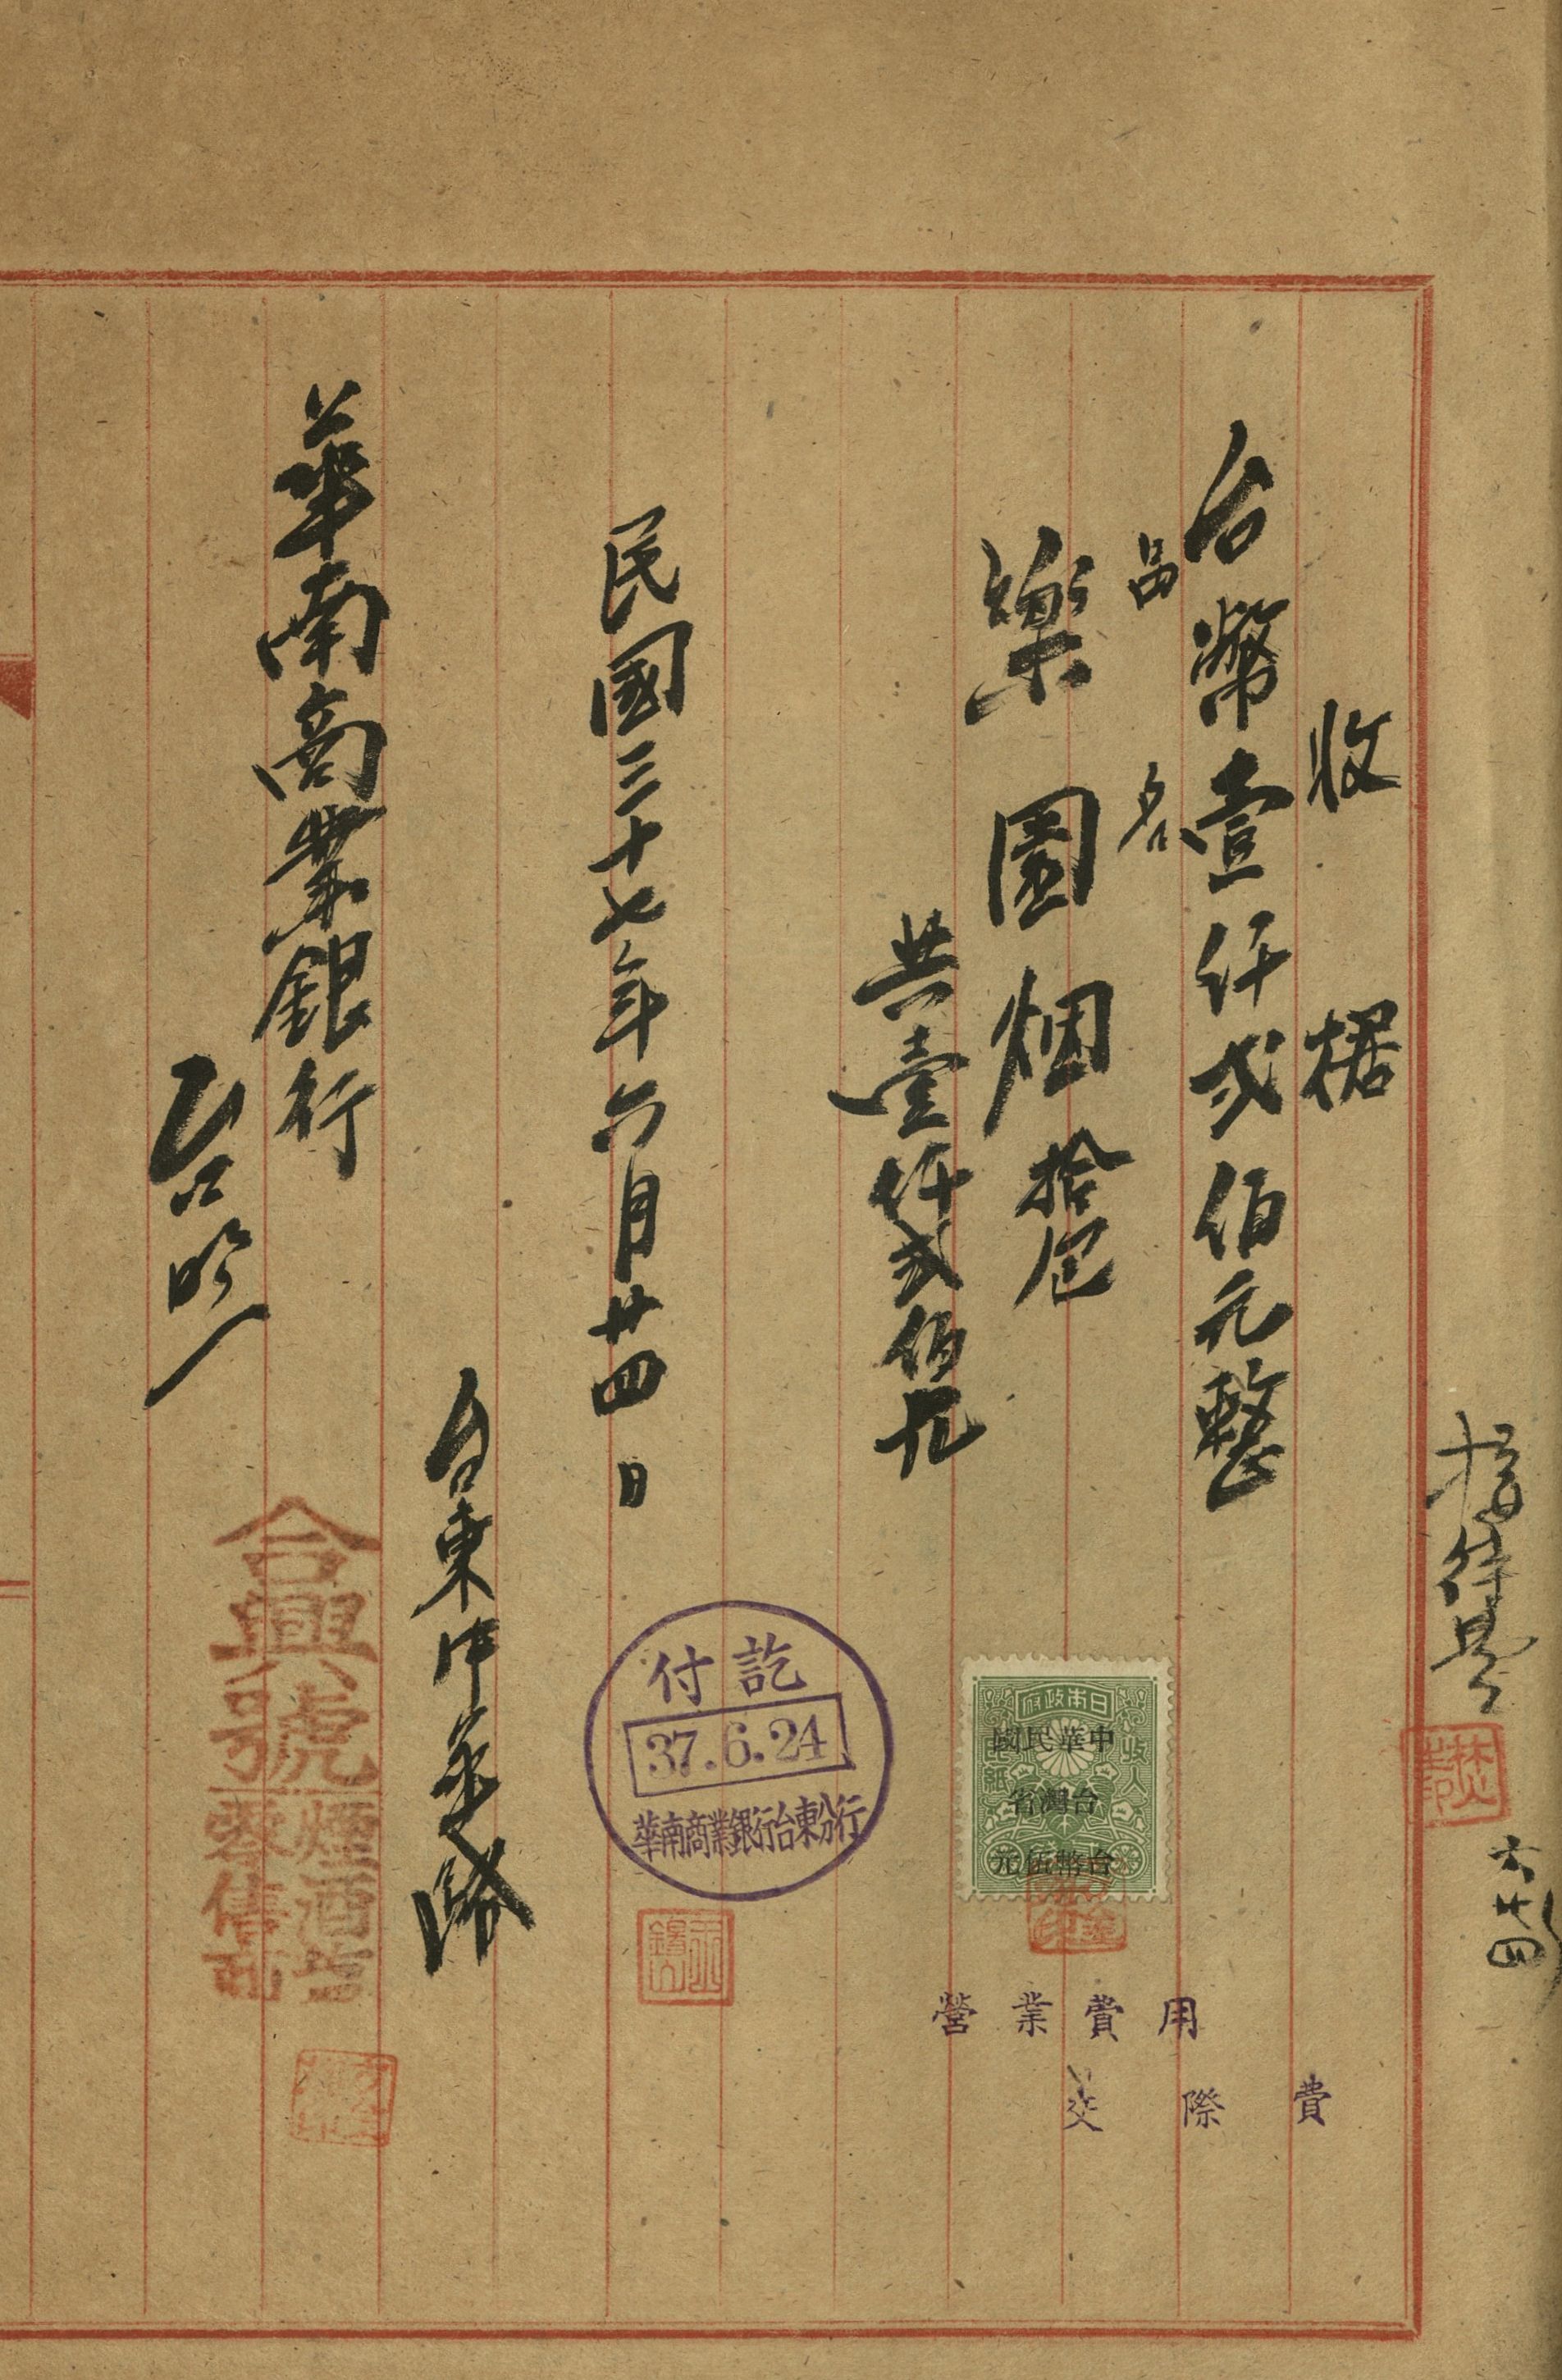 收据
台幣壹仟貳佰元整
品名
樂園烟拾包
共壹仟貳佰元
民國三十七年六月廿四日
台東中華路
華南商業銀行
台照
合興號
煙酒塩
零售商
付訖
37.6.24
華南商業銀行台東分行
日本政府
收入印紙
中華民國
台灣省
台幣伍元
營業費用
交際費
接待
六廿四